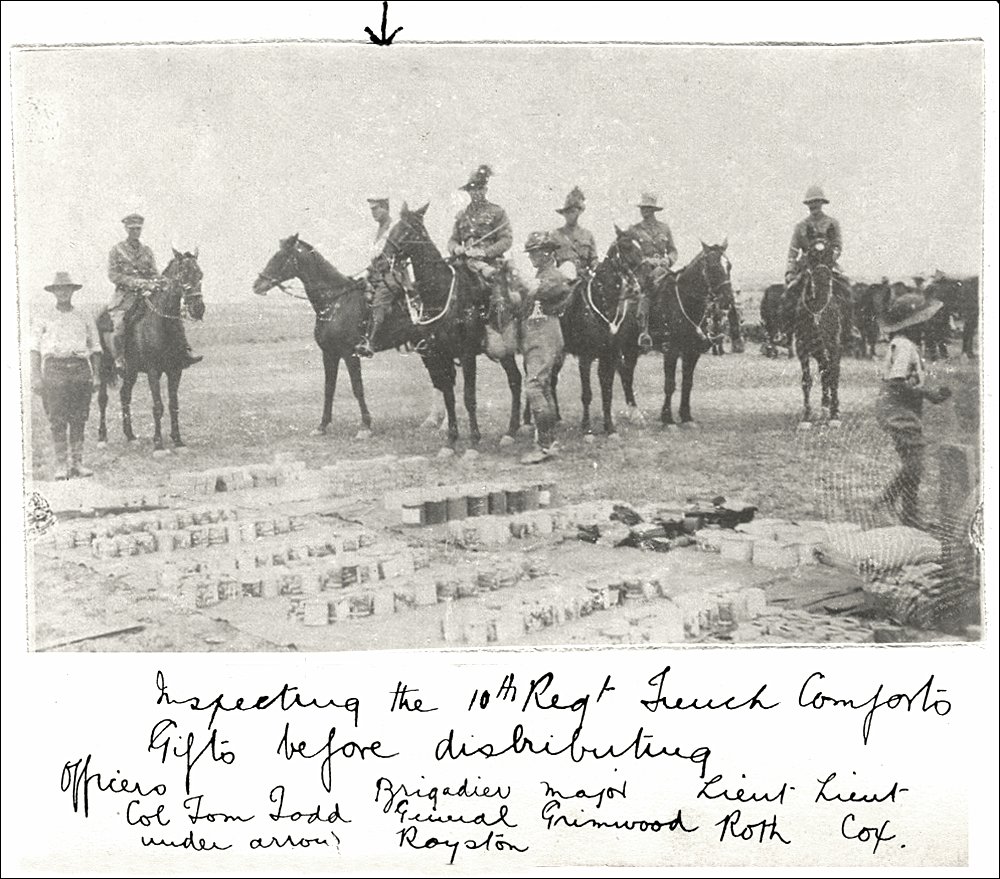 Inspecting the 10th Regt Trench Comforts
Gifts before distributing
Officers Brigadier Major Lieut Lieut
Col Tom Todd General Grimwood Roth Cox.
under arrow Royston